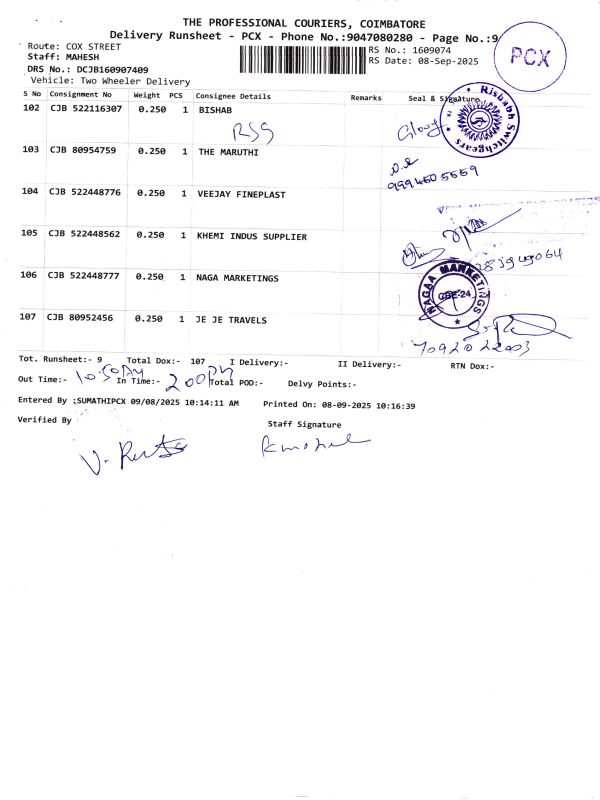 THE PROFESSIONAL COURIERS, COIMBATORE
Delivery Runsheet - PCX - Phone No.:9047080280 - Page No.:9
Route: COX STREET RS No.: 1609074
Staff: MAHESH RS Date: 08-Sep-2025
DRS No.: DCJB160907409
Vehicle: Two Wheeler Delivery
PCX
S No Consignment No Weight PCS Consignee Details Remarks Seal & Signature
102 CJB 522116307 0.250 1 BISHAB
RSG
Rishabh Switchgears
103 CJB 80954759 0.250 1 THE MARUTHI
104 CJB 522448776 0.250 1 VEEJAY FINEPLAST
105 CJB 522448562 0.250 1 KHEMI INDUS SUPPLIER
106 CJB 522448777 0.250 1 NAGA MARKETINGS
NAGAA MARKETINGS
CBE-24
107 CJB 80952456 0.250 1 JE JE TRAVELS
Tot. Runsheet:- 9 Total Dox:- 107 I Delivery:- II Delivery:- RTN Dox:-
Out Time:- 10:50AM In Time:- 2:00PM Total POD:- Delvy Points:-
Entered By :SUMATHIPCX 09/08/2025 10:14:11 AM Printed On: 08-09-2025 10:16:39
Verified By Staff Signature